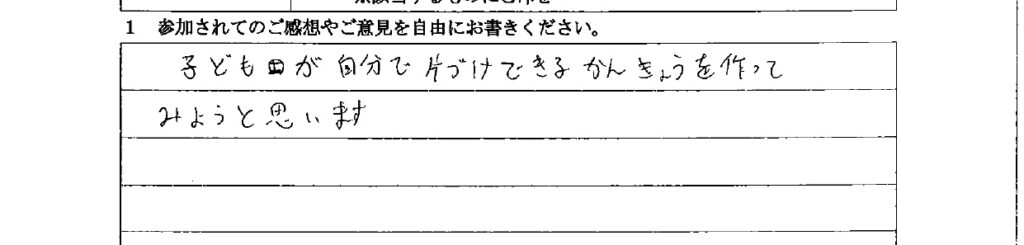 1 参加されてのご感想やご意見を自由にお書きください。
子どもが自分で片づけできるかんきょうを作って
みようと思います